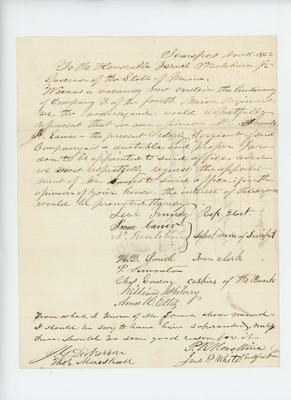 Searsport Nov 15. 1862
To the Honorable Israel Washburn Jr
Governor of the State of Maine.
Whereas a vacancy now exists in the Lieutenancy
of Company I. of the fourth Maine Regiment
we, the undersigned, would respectfully
represent that in our opinion
H. Eames - the present Orderly Sergeant of said
Company is a suitable and proper per-
son to be appointed to said office and
we most respectfully request the appoint-
ment of Mr Eames to said office, if in the
opinion of your honor, the interest of the service
would be promoted thereby
Rep. Elect.
Isaac Carver
Select men of Searsport
Smith Town clerk
P. Simonton
Chas Gordon cashier of the Bank
William McGilvery
Amos H. Ellis
From what I know of Mr Eames above named
I should be sorry to have him superseded, unless
there should be some good reason for it.
J. G. Dickerson
Thos Marshall
Jas P White Belfast